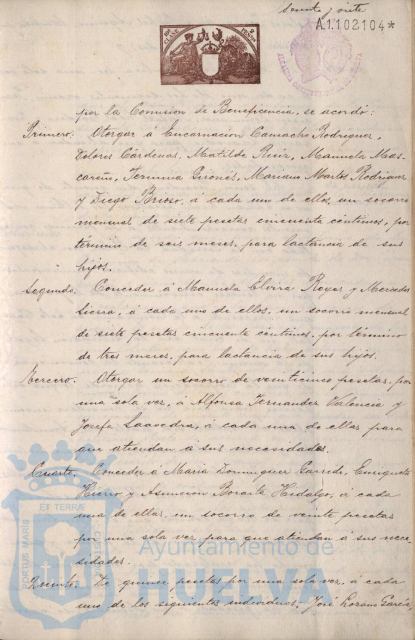 siete
A.1.102104*
por la Comision de Beneficencia, se acordó:
Primero. Otorgar á Encarnacion Camacho Rodriguez,
Dolores Cárdenas, Matilde Ruiz, Manuela Mas-
careño, Mariano Martos Rodriguez
y Diego Brioso, á cada uno de ellos, un socorro
mensual de siete pesetas cincuenta céntimos, por
término de seis meses, para lactancia de sus
hijos.
Segundo. Conceder á Manuela Elvira Reyes y Mercedes
Sierra, á cada uno de ellos, un socorro mensual
de siete pesetas cincuenta céntimos, por término
de tres meses, para lactancia de sus hijos.
Tercero. Otorgar un socorro de veinticinco pesetas, por
una sola vez, á Alfonsa Fernandez Valencia y
Josefa Saavedra, á cada una de ellas para
que atiendan á sus necesidades.
Cuarto. Conceder á Maria Dominguez Garrido, Enriqueta
Hierro y Asuncion Hidalgo, á cada
una de ellas, un socorro de veinte pesetas
por una sola vez, para que atiendan á sus nece-
sidades.
Quinto. De quince pesetas por una sola vez, á cada
uno de los siguientes individuos: José Lozano Garcia,
PORTUS MARIS
ET TERRÆ
Ayuntamiento de
HUELVA